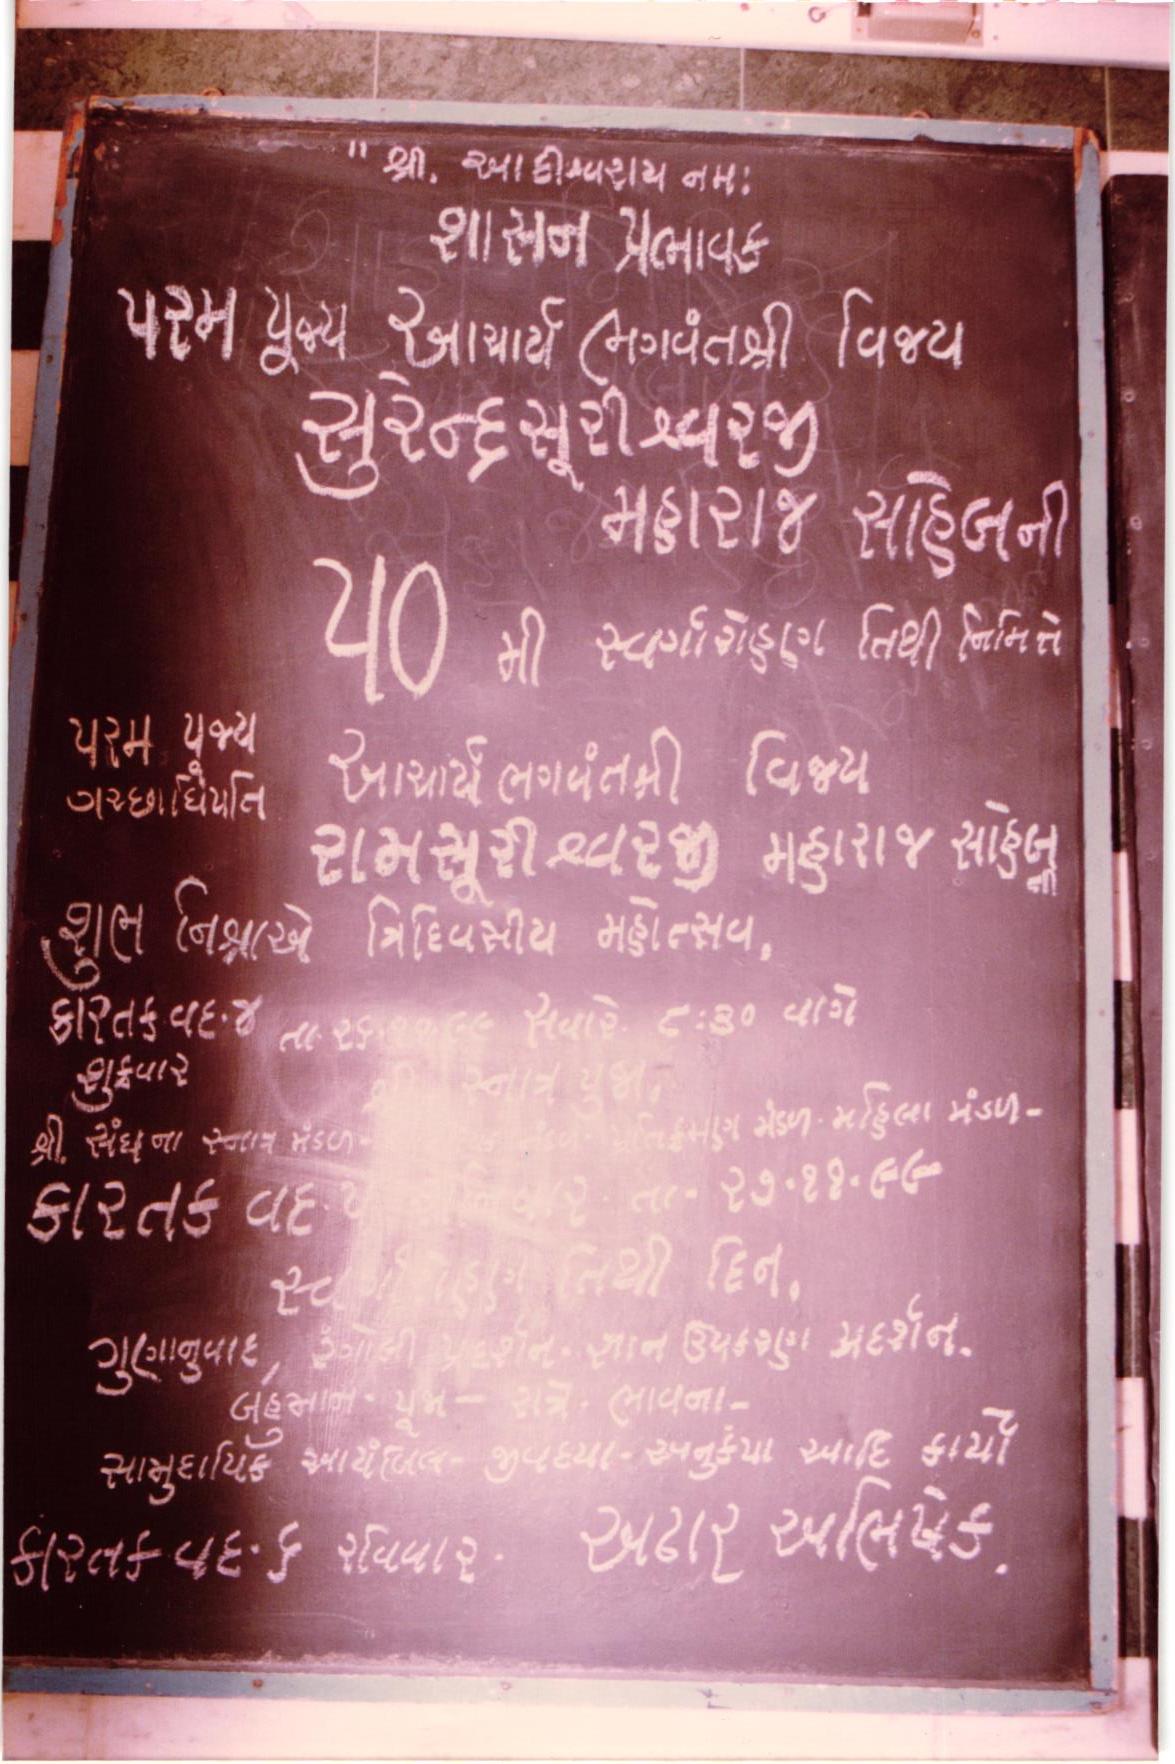 " શ્રી. આદીશ્વરાય નમઃ
શાસન પ્રભાવક
પરમ પૂજ્ય આચાર્ય ભગવંતશ્રી વિજય
સુરેન્દ્રસૂરીશ્વરજી
મહારાજ સાહેબની
૫૦ મી સ્વર્ગારોહણ તિથી નિમિત્તે
પરમ પૂજ્ય
ગચ્છાધિપતિ
આચાર્ય ભગવંતશ્રી વિજય
રામસૂરીશ્વરજી મહારાજ સાહેબની
શુભ નિશ્રાએ ત્રિદિવસીય મહોત્સવ.
કારતક વદ.૪ તા. સવારે ૮:૩૦ વાગે
શુક્રવાર
સ્નાત્ર પુજા.
શ્રી. સંઘના સ્નાત્ર મંડળ- પ્રતિક્રમણ મંડળ. મહિલા મંડળ-
કારતક વદ. તા- ૨૭.૧૧.૯૯
સ્વર્ગારોહણ તિથી દિન.
ગુણાનુવાદ, રંગોલી પ્રદર્શન. જ્ઞાન ઉપકરણ પ્રદર્શન.
બહુમાન- પૂજા- રાત્રે. ભાવના-
સામુદાયિક આયંબિલ- જીવદયા- અનુકંપા આદિ કાર્યો
કારતક વદ. ૬ રવિવાર. અઢાર અભિષેક.